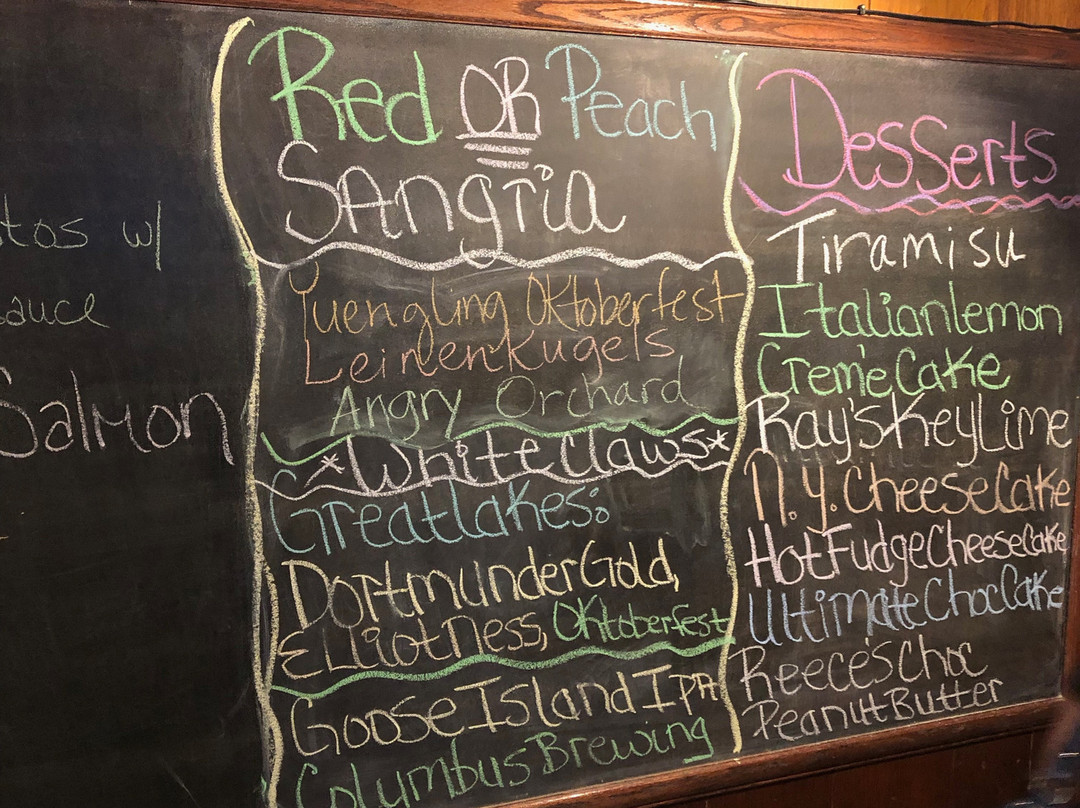 tos w/
sauce
Salmon
Red OR Peach
Sangria
Yuengling Oktoberfest
Leinenkugels
Angry Orchard
*White Claws*
Great Lakes:
Dortmunder Gold,
Elliot Ness, Oktoberfest
Goose Island IPA
Columbus Brewing
Desserts
Tiramisu
Italian lemon
Creme Cake
Ray's Key Lime
N.Y. Cheese Cake
Hot Fudge Cheese Cake
Ultimate Choc Cake
Reece's Choc
Peanut Butter